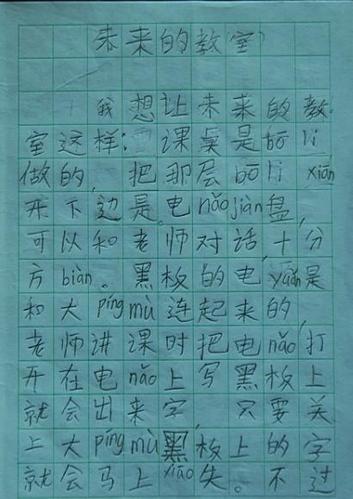 未来的教室
我想让未来的教
室这样:课桌是bō li
做的,把那层bō li xiān
开下边是电nǎojiàn盘,
可以和老师对话,十分
方biàn。黑板的电yuán是
和大píngmù连起来的,
老师讲课时把电nǎo打
开在电nǎo上写黑板上
就会出来字,只要关
上大píngmù黑板上的字
就会马上xiāo失。不过